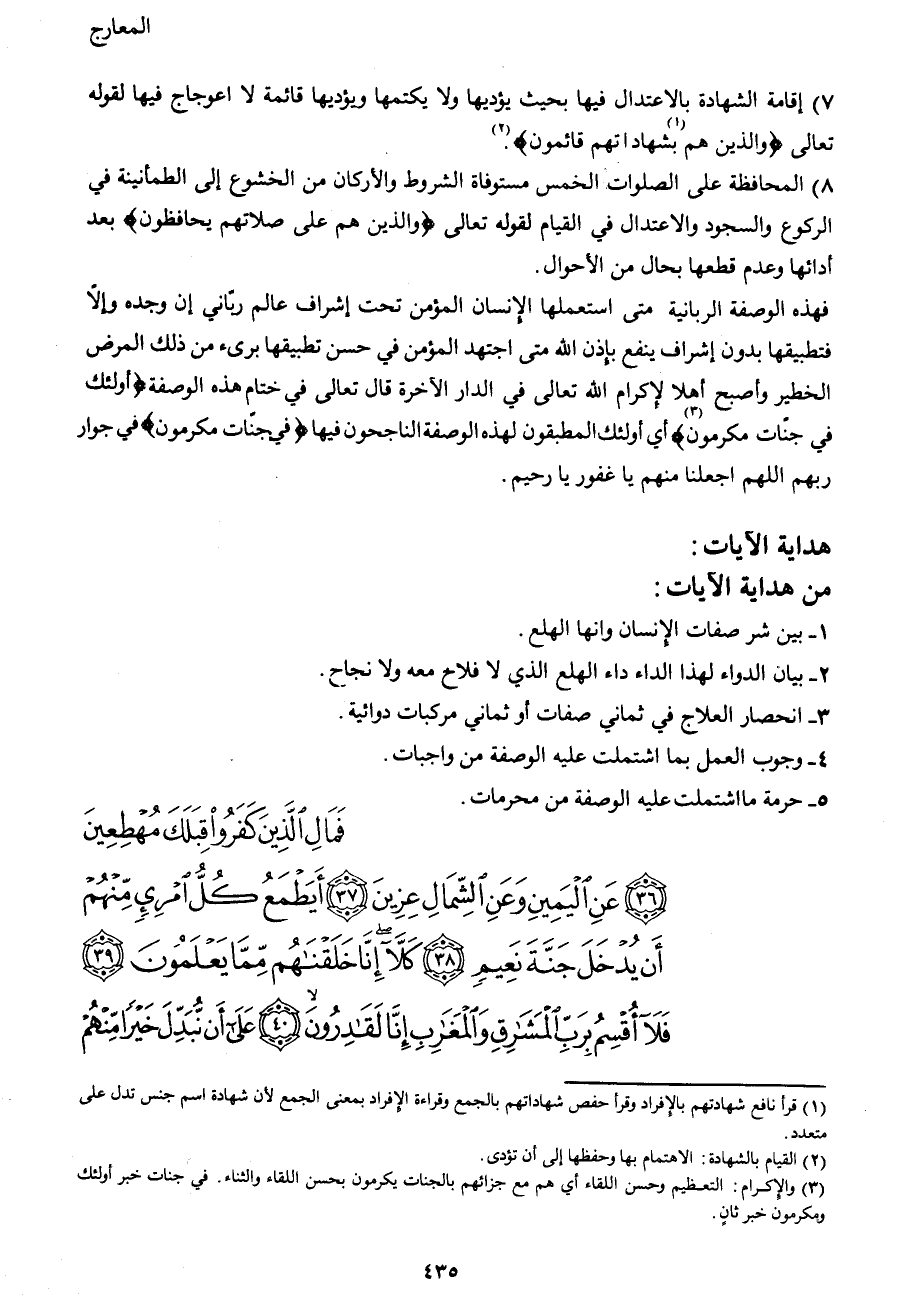 المعارج
٧) إقامة الشهادة بالاعتدال فيها بحيث يؤديها ولا يكتمها ويؤديها قائمة لا اعوجاج فيها لقوله
تعالى ﴿والذين هم بشهاداتهم(١) قائمون﴾.(٢)
٨) المحافظة على الصلوات الخمس مستوفاة الشروط والأركان من الخشوع إلى الطمأنينة في
الركوع والسجود والاعتدال في القيام لقوله تعالى ﴿والذين هم على صلاتهم يحافظون﴾ بعد
أدائها وعدم قطعها بحال من الأحوال.
فهذه الوصفة الربانية متى استعملها الإنسان المؤمن تحت إشراف عالم ربّاني إن وجده وإلّا
فتطبيقها بدون إشراف ينفع بإذن الله متى اجتهد المؤمن في حسن تطبيقها برىء من ذلك المرض
الخطير وأصبح أهلا لإكرام الله تعالى في الدار الآخرة قال تعالى في ختام هذه الوصفة ﴿أولئك
في جنّات مكرمون(٣)﴾ أي أولئك المطبقون لهذه الوصفة الناجحون فيها ﴿في جنّات مكرمون﴾ في جوار
ربهم اللهم اجعلنا منهم يا غفور يا رحيم.
هداية الآيات:
من هداية الآيات:
١- بين شر صفات الإنسان وانها الهلع.
٢- بيان الدواء لهذا الداء داء الهلع الذي لا فلاح معه ولا نجاح.
٣- انحصار العلاج في ثماني صفات أو ثماني مركبات دوائية.
٤- وجوب العمل بما اشتملت عليه الوصفة من واجبات.
٥- حرمة مااشتملت عليه الوصفة من محرمات.
فَمَالِ الَّذِينَ كَفَرُوا۟ قِبَلَكَ مُهْطِعِينَ
﴿٣٦﴾ عَنِ الْيَمِينِ وَعَنِ الشِّمَالِ عِزِينَ ﴿٣٧﴾ أَيَطْمَعُ كُلُّ امْرِئٍ مِّنْهُمْ
أَن يُدْخَلَ جَنَّةَ نَعِيمٍ ﴿٣٨﴾ كَلَّآ ۖ إِنَّا خَلَقْنَٰهُم مِّمَّا يَعْلَمُونَ ﴿٣٩﴾
فَلَآ أُقْسِمُ بِرَبِّ الْمَشَٰرِقِ وَالْمَغَٰرِبِ إِنَّا لَقَٰدِرُونَ ۙ ﴿٤٠﴾ عَلَىٰٓ أَن نُّبَدِّلَ خَيْرًا مِّنْهُمْ
(١) قرأ نافع شهادتهم بالإفراد وقرأ حفص شهاداتهم بالجمع وقراءة الإفراد بمعنى الجمع لأن شهادة اسم جنس تدل على
متعدد.
(٢) القيام بالشهادة: الاهتمام بها وحفظها إلى أن تؤدى.
(٣) والإكرام: التعظيم وحسن اللقاء أي هم مع جزائهم بالجنات يكرمون بحسن اللقاء والثناء. في جنات خبر أولئك
ومكرمون خبر ثانٍ.
٤٣٥